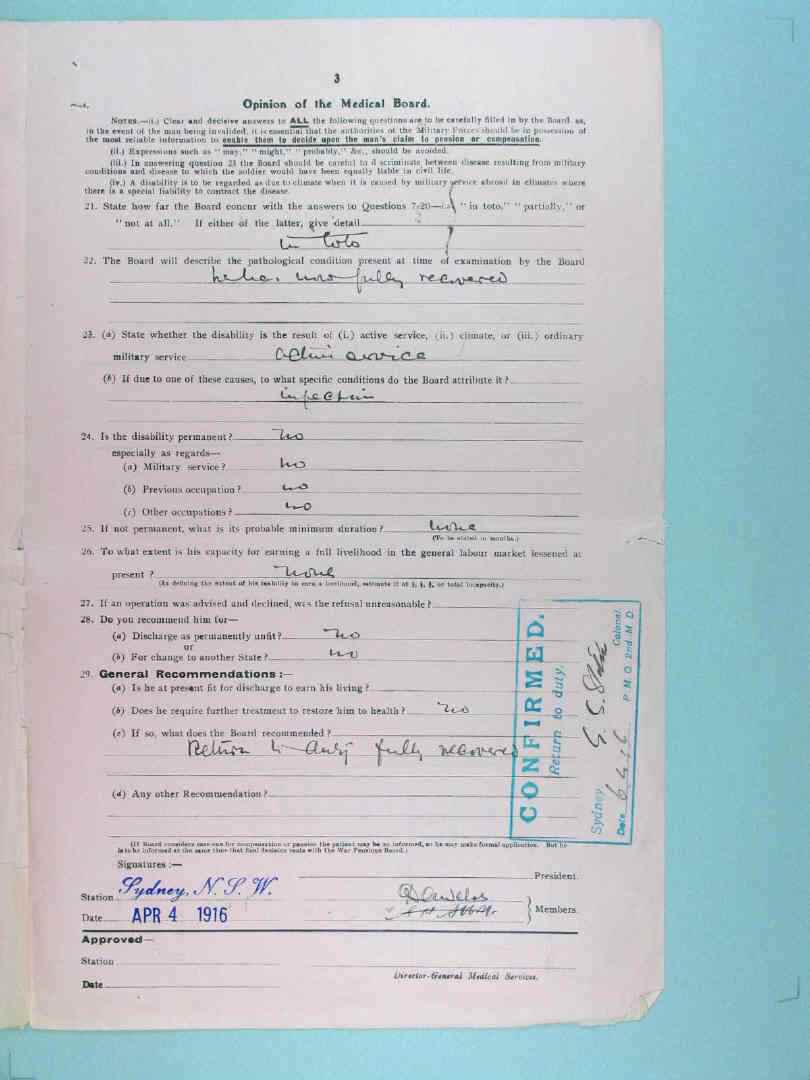 3
Opinion of the Medical Board.
NOTES.—(i.) Clear and decisive answers to ALL the following questions are to be carefully filled in by the Board as,
in the event of the man being invalided, it is essential that the authorities of the Military Forces should be in possession of
the most reliable information to enable them to decide upon the man's claim to pension or compensation.
(ii.) Expressions such as "may," "might," "probably," &c., should be avoided.
(iii.) In answering question 23 the Board should be careful to discriminate between disease resulting from military
conditions and disease to which the soldier would have been equally liable in civil life.
(iv.) A disability is to be regarded as due to climate when it is caused by military service abroad in climates where
there is a special liability to contract the disease.
21. State how far the Board concur with the answers to Questions 7-20—i.e., "in toto," "partially," or
"not at all." If either of the latter, give detail
in toto
22. The Board will describe the pathological condition present at time of examination by the Board
he has now fully recovered
23. (a) State whether the disability is the result of (i.) active service, (ii.) climate, or (iii.) ordinary
military service active service
(b) If due to one of these causes, to what specific conditions do the Board attribute it?
infection
24. Is the disability permanent? no
especially as regards—
(a) Military service? no
(b) Previous occupation? no
(c) Other occupations? no
25. If not permanent, what is its probable minimum duration? none
(To be stated in months.)
26. To what extent is his capacity for earning a full livelihood in the general labour market lessened at
present? none
(In defining the extent of his inability to earn a livelihood, estimate it at ¼, ½, ¾, or total incapacity.)
27. If an operation was advised and declined, was the refusal unreasonable?
28. Do you recommend him for—
(a) Discharge as permanently unfit? no
or
(b) For change to another State? no
29. General Recommendations:—
(a) Is he at present fit for discharge to earn his living?
(b) Does he require further treatment to restore him to health? no
(c) If so, what does the Board recommended?
Return to duty fully recovered
(d) Any other Recommendation?
CONFIRMED.
Return to duty.
Sydney
Colonel.
P M O 2nd M D
Date 6 4 16
(If Board considers case one for compensation or pension the patient may be so informed, so he may make formal application. But he
is to be informed at the same time that final decision rests with the War Pensions Board.)
Signatures:—
President.
Station Sydney, N. S. W.
Date APR 4 1916
Members.
Approved—
Station
Director-General Medical Services.
Date